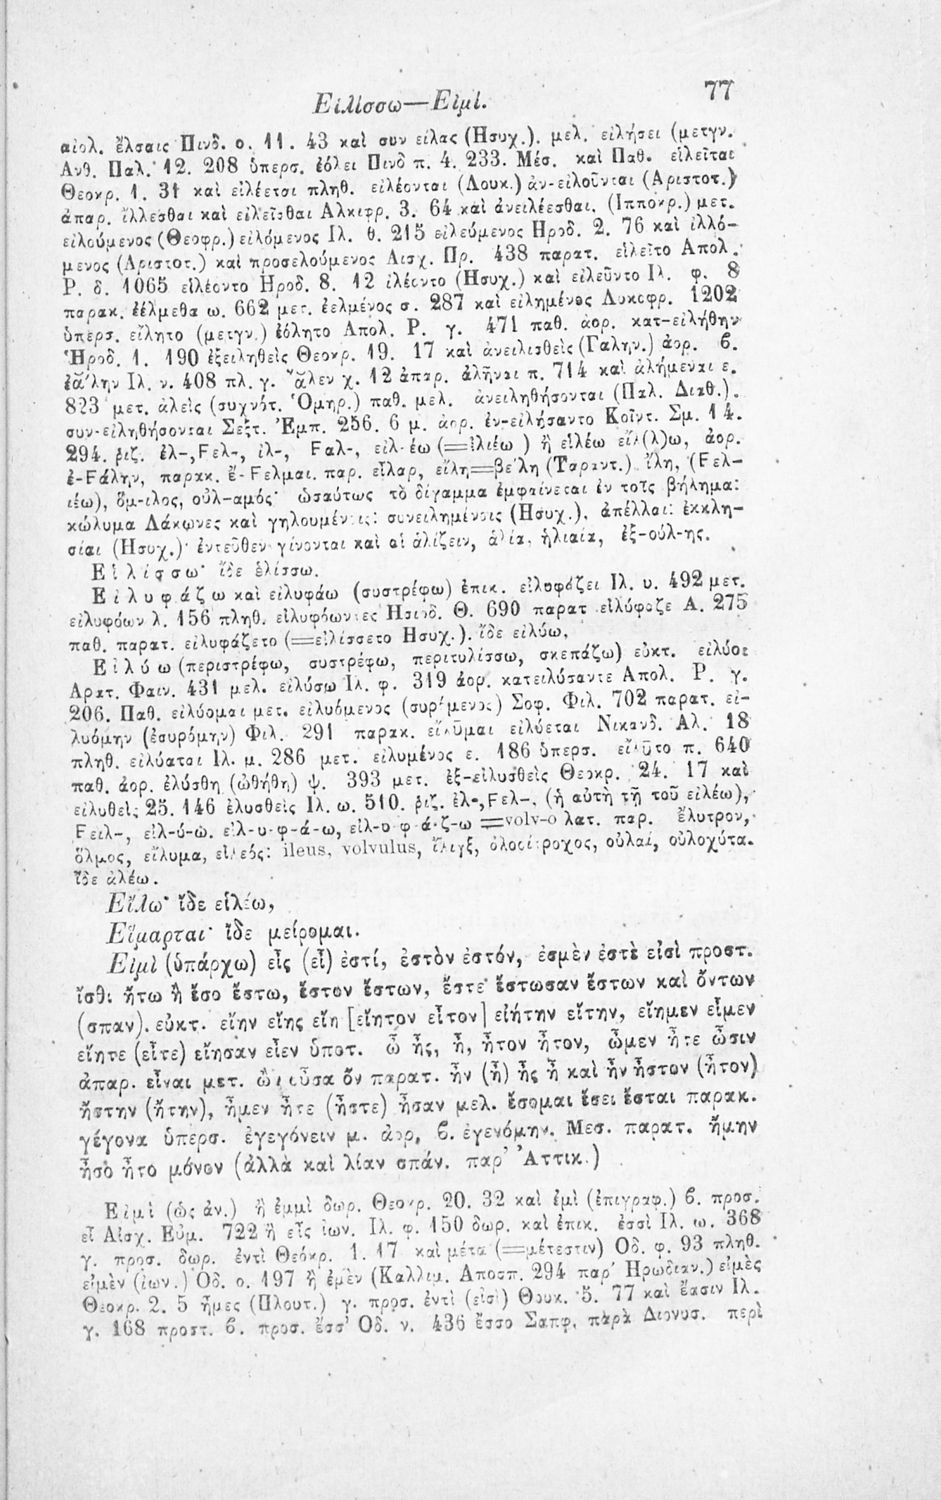 Εἰλίσσω—Εἰμί. 77
αἰολ. ἔλσαις Πινδ. ο. 11. 43 καὶ συν είλας (Ησυχ.). μελ. εἰλήσει (μετγν.
Ανθ. Παλ. 12. 208 ὑπερσ. ἐόλει Πινδ π. 4. 233. Μέσ. καὶ Παθ. εἰλεῖται
Θεοκρ. 1. 31 καὶ εἰλέεται πληθ. εἰλέονται (Λουκ.) ἀν-ειλοῦνται (Αριστοτ.)
ἀπαρ. ἴλλεσθαι καὶ εἰλεῖσθαι Αλκιφρ. 3. 64 καὶ ἀνειλέεσθαι. (Ιπποκρ.) μετ.
εἰλούμενος (Θεοφρ.) εἰλόμενος Ιλ. θ. 215 εἰλεύμενος Ηροδ. 2. 76 καὶ ἰλλό-
μενος (Αριστοτ.) καὶ προσελούμενος Αισχ. Πρ. 438 παρατ. εἰλεῖτο Απολ.
Ρ. δ. 1065 εἰλέοντο Ηροδ. 8. 12 ἰλέοντο (Ησυχ.) καὶ εἰλεῦντο Ιλ. φ. 8
παρακ. ἐέλμεθα ω. 662 μετ. ἐελμένος σ. 287 καὶ εἰλημένος Λυκοφρ. 1202
ὑπερσ. εἴλητο (μετγν.) ἐόλητο Απολ. Ρ. γ. 471 παθ. ἀορ. κατ-ειλήθην
Ἡροδ. 1. 190 ἐξειληθεὶς Θεοκρ. 19. 17 καὶ ἀνειλισθεὶς (Γαλην.) ἀορ. β.
ἐάλην Ιλ. ν. 408 πλ. γ. ἄλεν χ. 12 ἀπαρ. ἀλῆναι π. 714 καὶ ἀλήμεναι ε.
823 μετ. ἀλεὶς (συχνότ. Ὁμηρ.) παθ. μελ. ἀνειληθήσονται (Παλ. Διαθ.).
συν-ειληθήσονται Σεξτ. Ἐμπ. 256. 6 μ. ἀορ. ἐν-ειλήσαντο Κοΐντ. Σμ. 14.
294. ῥιζ. ἐλ-, Fελ-, ἰλ-, Fαλ-, εἰλ-έω (=ἰλιέω) ἢ εἰλέω εἴλ(λ)ω, ἀορ.
ἐ-Fάλην, παρακ. ἔ-Fελμαι. παρ. εἶλαρ, εἴλη=βείλη (Ταραντ.). ἴλη, (Fελ-
ιέω), ὅμ-ιλος, οὐλ-αμός· ὡσαύτως τὸ δίγαμμα ἐμφαίνεται ἐν τοῖς βήλημα:
κώλυμα Λάκωνες καὶ γηλουμένοις: συνειλημένοις (Ησυχ.), ἀπέλλαι: ἐκκλη-
σίαι (Ησυχ.)· ἐντεῦθεν γίνονται καὶ αἱ ἁλίζειν, ἁλία, ἡλιαία, ἐξ-ούλ-ης.
Εἱλίσσω· ἴδε ἑλίσσω.
Εἰλυφάζω καὶ εἰλυφάω (συστρέφω) ἐπικ. εἰλυφάζει Ιλ. υ. 492 μετ.
εἰλυφόων λ. 156 πληθ. εἰλυφόωντες Ησιοδ. Θ. 690 παρατ εἰλύφαζε Α. 275
παθ. παρατ. εἰλυφάζετο (=εἱλίσσετο Ησυχ.). ἴδε εἰλύω,
Εἰλύω (περιστρέφω, συστρέφω, περιτυλίσσω, σκεπάζω) εὐκτ. εἰλύοι
Αρατ. Φαιν. 431 μελ. εἰλύσω Ιλ. φ. 319 ἀορ. κατειλύσαντε Απολ. Ρ. γ.
206. Παθ. εἰλύομαι μετ. εἰλυόμενος (συρόμενος) Σοφ. Φιλ. 702 παρατ. εἰ-
λυόμην (ἐσυρόμην) Φιλ. 291 παρακ. εἴλυμαι εἰλύεται Νικανδ. Αλ. 18
πληθ. εἰλύαται Ιλ. μ. 286 μετ. εἰλυμένος ε. 186 ὑπερσ. εἴλυτο π. 640
παθ. ἀορ. ἐλύσθη (ὠθήθη) ψ. 393 μετ. ἐξ-ειλυσθεὶς Θεοκρ. 24. 17 καὶ
εἰλυθεὶς 25. 146 ἐλυσθεὶς Ιλ. ω. 510. ῥιζ. ἐλ-, Fελ-, (ἡ αὐτὴ τῇ τοῦ εἰλέω),
Fειλ-, εἰλ-ύ-ω. εἰλ-υ-φ-ά-ω, εἰλ-υ φ ά-ζ-ω =volv-o λατ. παρ. ἔλυτρον,
ὅλμος, εἴλυμα, εἰλεός: ileus, volvulus, ἴλιγξ, ὀλοοίτροχος, οὐλαί, οὐλοχύτα.
ἴδε ἀλέω.
Εἴλω· ἴδε εἰλέω,
Εἵμαρται· ἴδε μείρομαι.
Εἰμὶ (ὑπάρχω) εἶς (εἶ) ἐστί, ἐστὸν ἐστόν, ἐσμὲν ἐστὲ εἰσὶ προστ.
ἴσθι ἤτω ἢ ἔσο ἔστω, ἔστον ἔστων, ἔστε ἔστωσαν ἔστων καὶ ὄντων
(σπαν). εὐκτ. εἴην εἴης εἴη [εἴητον εἶτον] εἰήτην εἴτην, εἴημεν εἶμεν
εἴητε (εἶτε) εἴησαν εἶεν ὑποτ. ὦ ᾖς, ᾖ, ἦτον ἦτον, ὦμεν ἦτε ὦσιν
ἀπαρ. εἶναι μετ. ὢν οὖσα ὂν παρατ. ἦν (ἦ) ἦς ἦ καὶ ἦν ἦστον (ἦτον)
ἤστην (ἤτην), ἦμεν ἦτε (ἦστε) ἦσαν μελ. ἔσομαι ἔσει ἔσται παρακ.
γέγονα ὑπερσ. ἐγεγόνειν μ. ἀορ. β. ἐγενόμην. Μεσ. παρατ. ἤμην
ἦσο ἦτο μόνον (ἀλλὰ καὶ λίαν σπάν. παρ᾽ Ἀττικ.)
Εἰμὶ (ὡς ἀν.) ἢ ἐμμὶ δωρ. Θεοκρ. 20. 32 καὶ ἐμὶ (ἐπιγραφ.) β. προσ.
εἶ Αἰσχ. Εὐμ. 722 ἢ εἲς ἰων. Ιλ. φ. 150 δωρ. καὶ ἐπικ. ἐσσὶ Ιλ. ω. 368
γ. προσ. δωρ. ἐντὶ Θεόκρ. 1. 17 καὶ μέτα (=μέτεστιν) Οδ. φ. 93 πληθ.
εἰμὲν (ἰων.) Οδ. ο. 197 ἢ ἐμὲν (Καλλιμ. Αποσπ. 294 παρ᾽ Ηρωδιαν.) εἰμὲς
Θεοκρ. 2. 5 ἦμες (Πλουτ.) γ. προσ. ἐντὶ (εἰσὶ) Θουκ. 5. 77 καὶ ἔασιν Ιλ.
γ. 168 προστ. β. προσ. ἔσσ᾽ Οδ. ν. 436 ἔσσο Σαπφ. παρὰ Διονυσ. περὶ